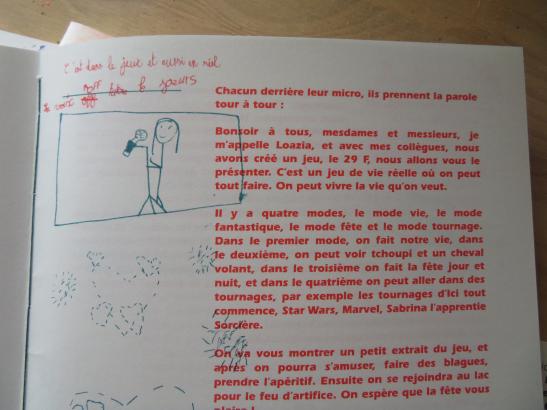 C'est dans le jeux et aussi en réel
voix off le jeours
Chacun derrière leur micro, ils prennent la parole
tour à tour :
Bonsoir à tous, mesdames et messieurs, je
m'appelle Loazia, et avec mes collègues, nous
avons créé un jeu, le 29 F, nous allons vous le
présenter. C'est un jeu de vie réelle où on peut
tout faire. On peut vivre la vie qu'on veut.
Il y a quatre modes, le mode vie, le mode
fantastique, le mode fête et le mode tournage.
Dans le premier mode, on fait notre vie, dans
le deuxième, on peut voir tchoupi et un cheval
volant, dans le troisième on fait la fête jour et
nuit, et dans le quatrième on peut aller dans des
tournages, par exemple les tournages d'Ici tout
commence, Star Wars, Marvel, Sabrina l'apprentie
Sorcière.
On va vous montrer un petit extrait du jeu, et
après on pourra s'amuser, faire des blagues,
prendre l'apéritif. Ensuite on se rejoindra au lac
pour le feu d'artifice. On espère que la fête vous
plaira !